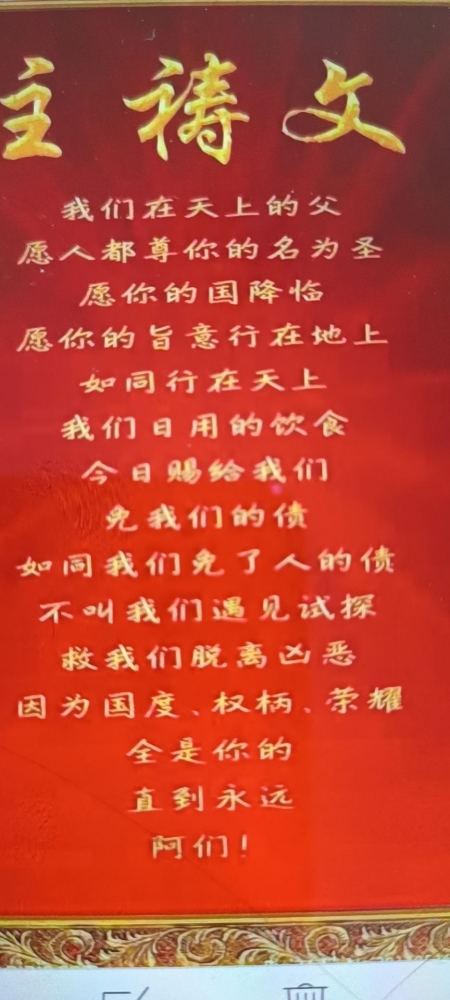 主祷文
我们在天上的父
愿人都尊你的名为圣
愿你的国降临
愿你的旨意行在地上
如同行在天上
我们日用的饮食
今日赐给我们
免我们的债
如同我们免了人的债
不叫我们遇见试探
救我们脱离凶恶
因为国度、权柄、荣耀
全是你的
直到永远
阿们!